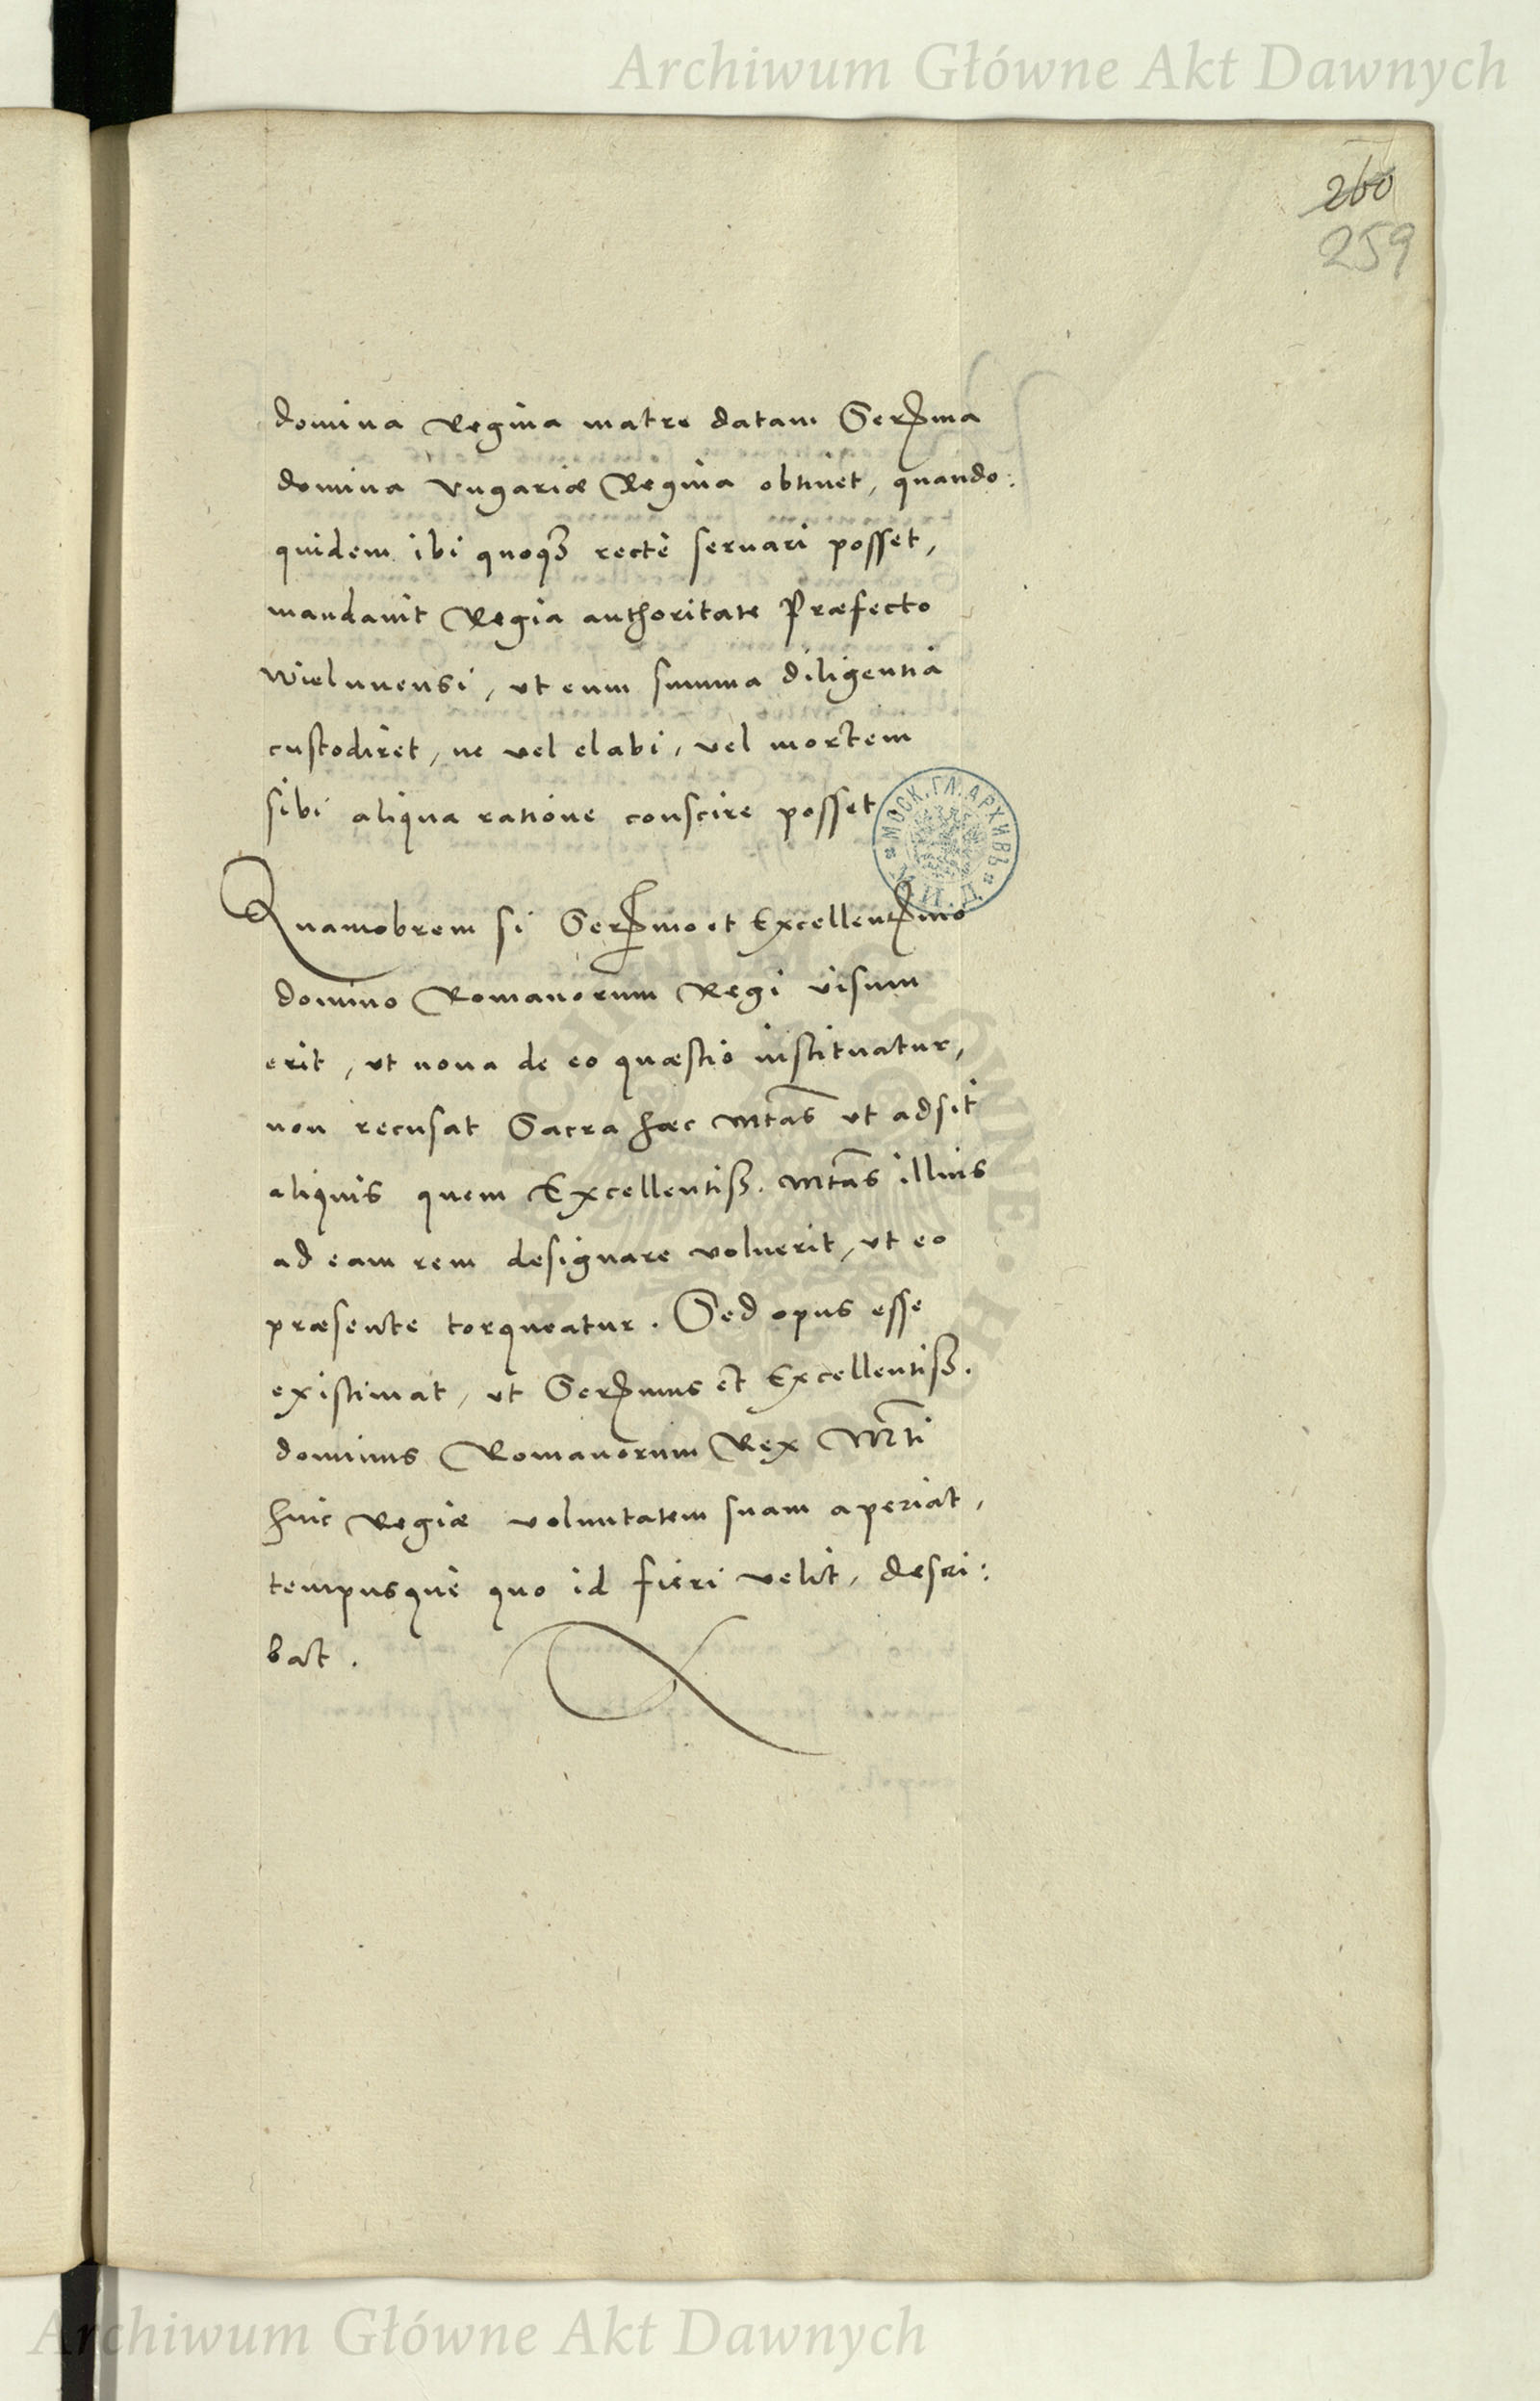 Archiwum Główne Akt Dawnych
260
259
domina Regina matre datam Serma
domina Vngariæ Regina obtinet, quando:
quidem ibi quoqȝ rectè seruari posset,
mandauit Regia authoritate Præfecto
Wielunensi, vt eum summa diligentia
custodiret, ne vel elabi, vel mortem
sibi aliqua ratione conscire posset.
МОСК. ГЛ. АРХИВЪ
Quamobrem si Sermo et Excellentmo
domino Romanorum Regi visum
erit, vt noua de eo quæstio instituatur,
non recusat Sacra hæc Mtas vt adsit
aliquis quem Excellentiss. Mtas illius
ad eam rem designare voluerit, vt eo
præsente torqueatur. Sed opus esse
existimat, vt Sermus et Excellentiss.
dominus Romanorum Rex Mti
huic Regiæ voluntatem suam aperiat,
tempusquè quo id fieri velit, descri:
bat.
Archiwum Główne Akt Dawnych